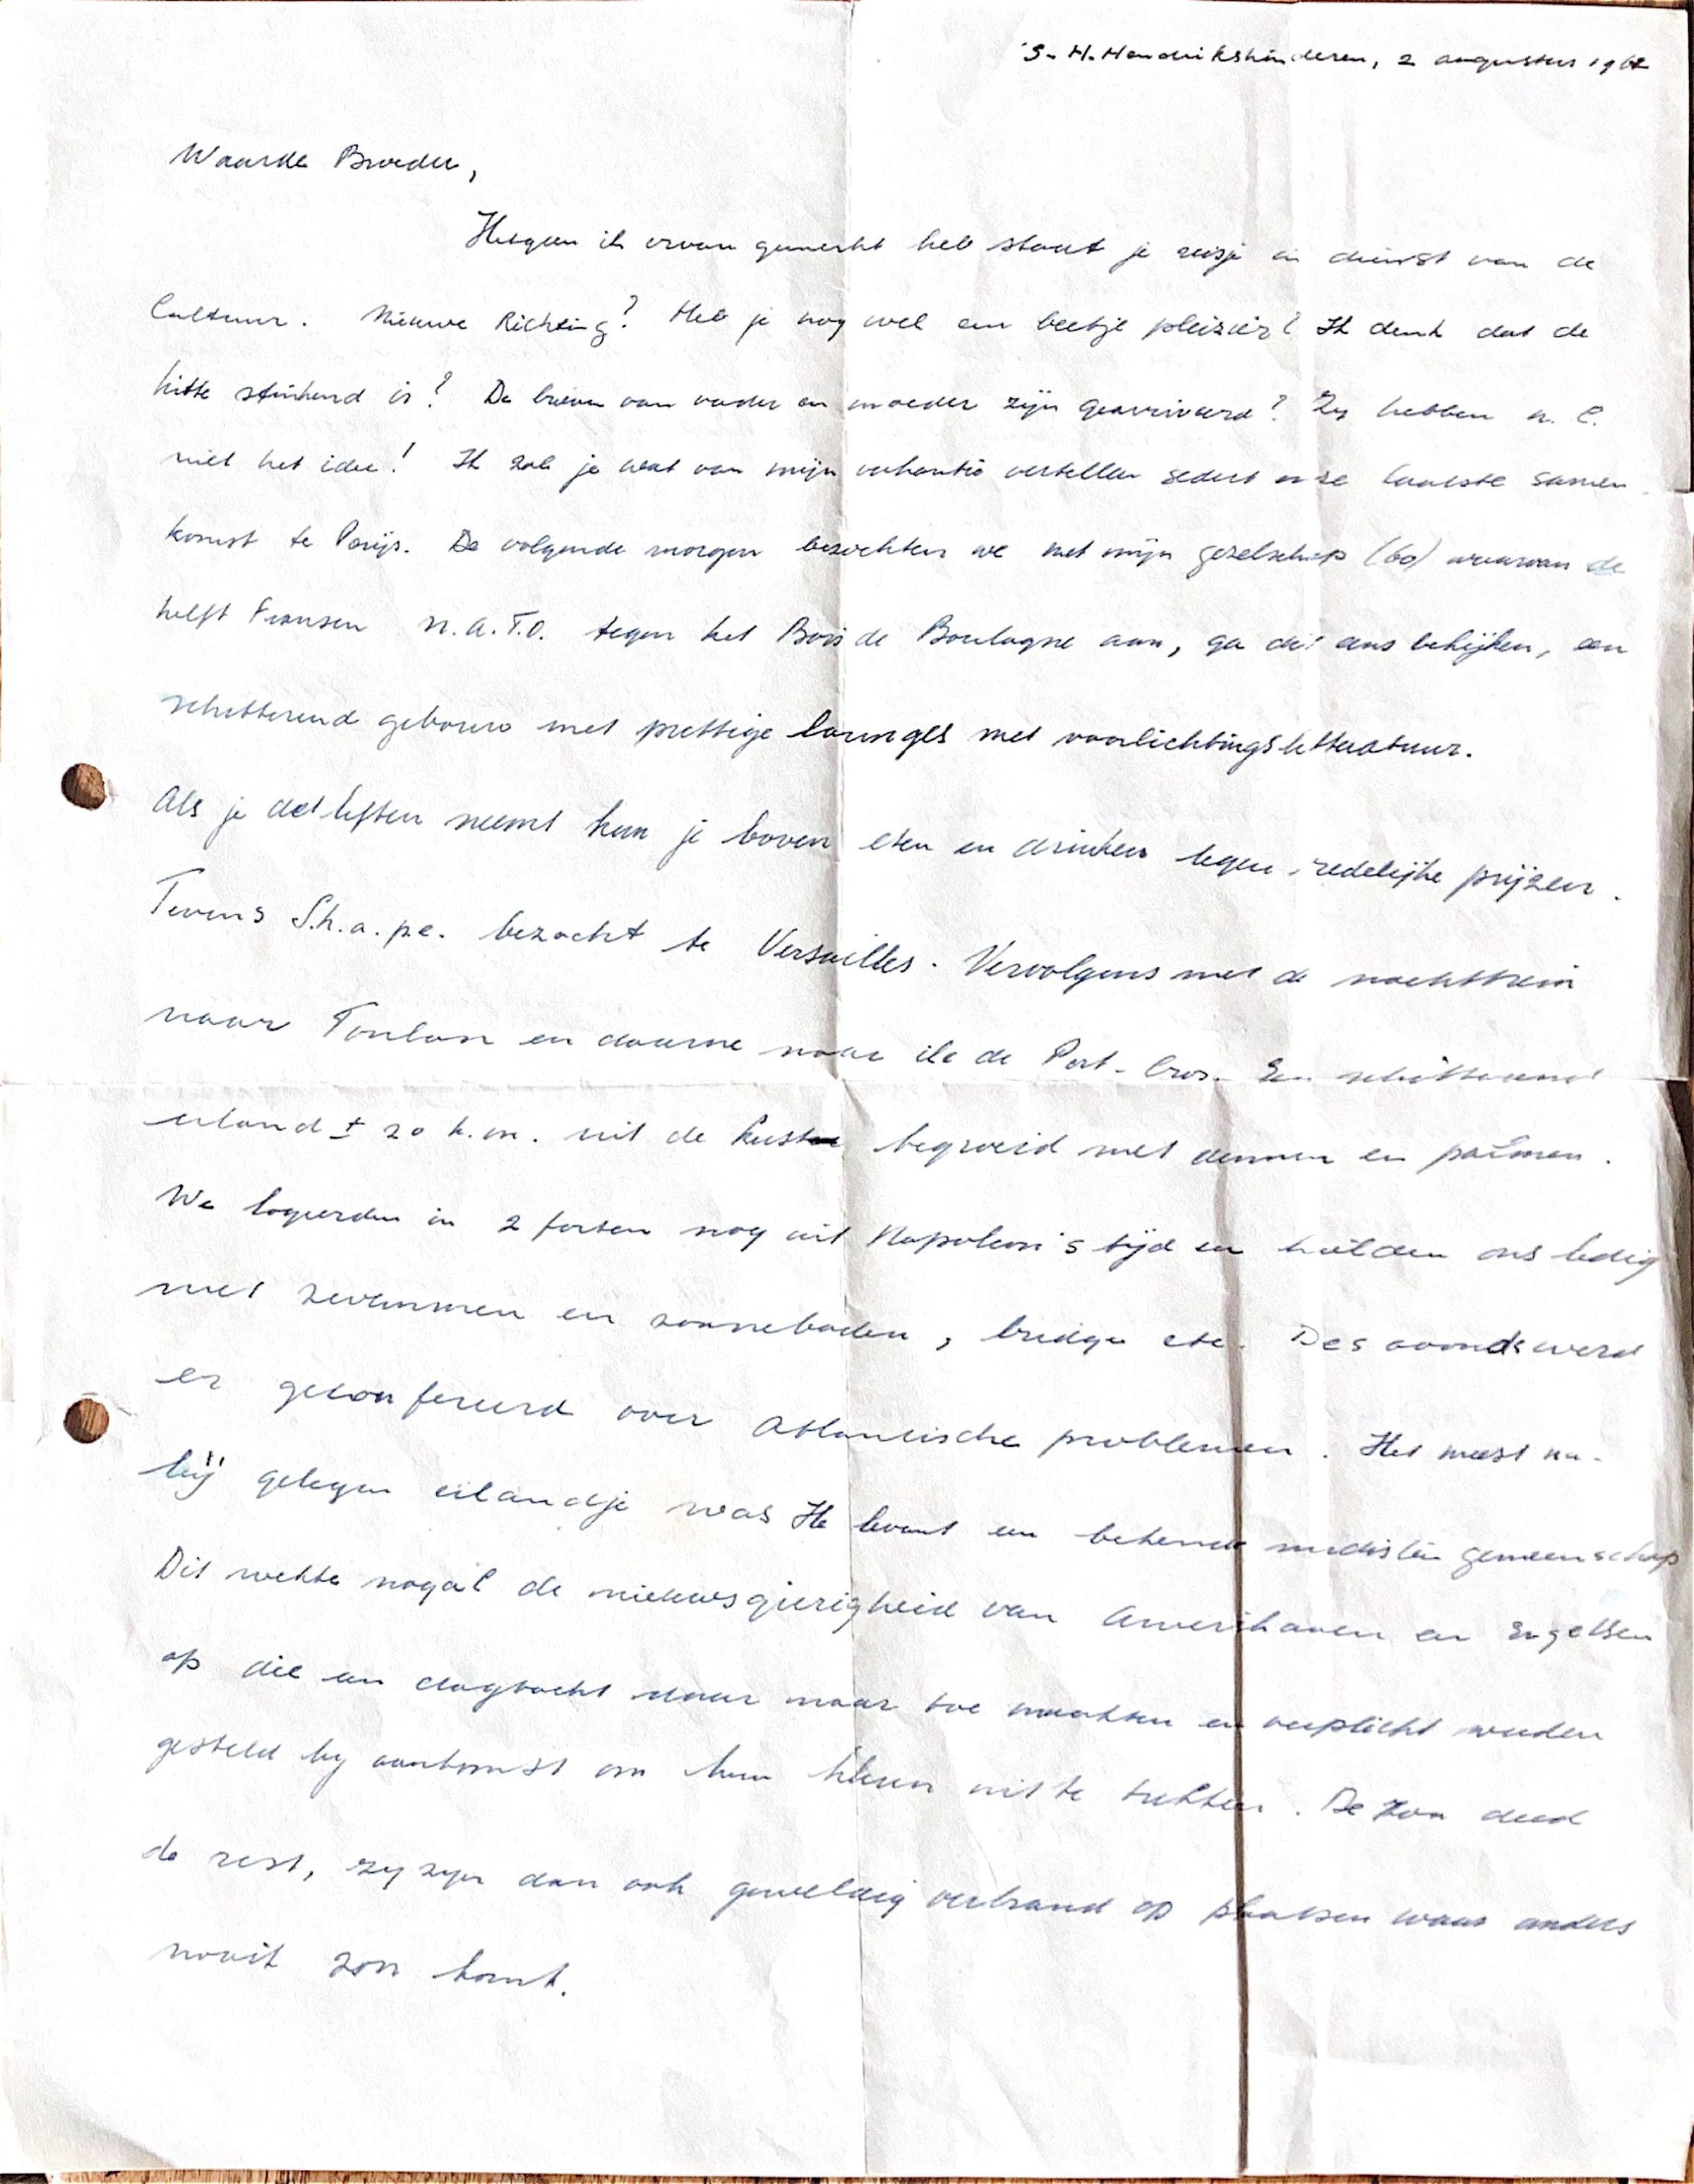 'S-H.Hendrikskinderen, 2 augustus 196
Waarde Broeder,
Hetgeen ik ervan gemerkt heb staat je reisje in dienst van de
Cultuur. Nieuwe Richting? Heb je nog wel een beetje pleizier? Ik denk dat de
hitte stinkend is? De brieven van vader en moeder zijn gearriveerd? Zy hebben n.l.
niet het idee! Ik zal je wat van mijn vakantie vertellen sedert onze laatste samen-
komst te Parijs. De volgende morgen bezochten we met mijn gezelschap (60) waarvan de
helft Fransen N.A.T.O. tegen het Bois de Boulogne aan, ga dit eens bekijken, een
schitterend gebouw met prettige lounges met voorlichtingslitteratuur.
Als je de liften neemt kun je boven eten en drinken tegen redelijke prijzen.
Tevens S.h.a.p.e. bezocht te Versailles. Vervolgens met de nachttrein
naar Toulon en daarna naar ile de Port-Cros. Een schitterend
eiland ± 20 k.m. uit de kust begroeid met dennen en palmen.
We logeerden in 2 forten nog uit Napoleon's tijd en hielden ons ledig
met zwemmen en zonnebaden, bridge etc. Des avonds werd
er geconfereerd over Atlantische problemen. Het meest na-
bij gelegen eilandje was Ile levant een bekende nudisten gemeenschap
Dit wekte nogal de nieuwsgierigheid van Amerikanen en Engelsen
op die een dagtocht daar naar toe maakten en verplicht werden
gesteld by aankomst om hun kleren uit te trekken. De zon deed
de rest, zy zyn dan ook geweldig verbrand op plaatsen waar anders
nooit zon komt.